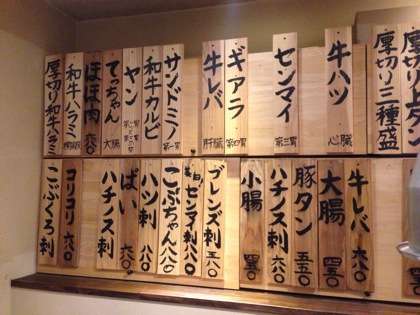 厚切りタン
厚切り三種盛
牛ハツ 心臓
センマイ 第三胃
ギアラ 第四胃
牛レバ 肝臓
サンドミノ 第一胃
和牛カルビ
ヤン
てっちゃん 大腸
ほほ肉 六八〇
和牛ハラミ 横隔膜
厚切り和牛ハラミ
牛レバ 六八〇
大腸 四五〇
豚タン 五五〇
ハチノス刺
小腸 四五〇
ブレンズ刺 五八〇
本日!センマイ刺 八八〇
こぶちゃん 八八〇
ハツ刺 八八〇
ぱい 六八〇
ハチノス刺
コリコリ 六八〇
こぶくろ刺